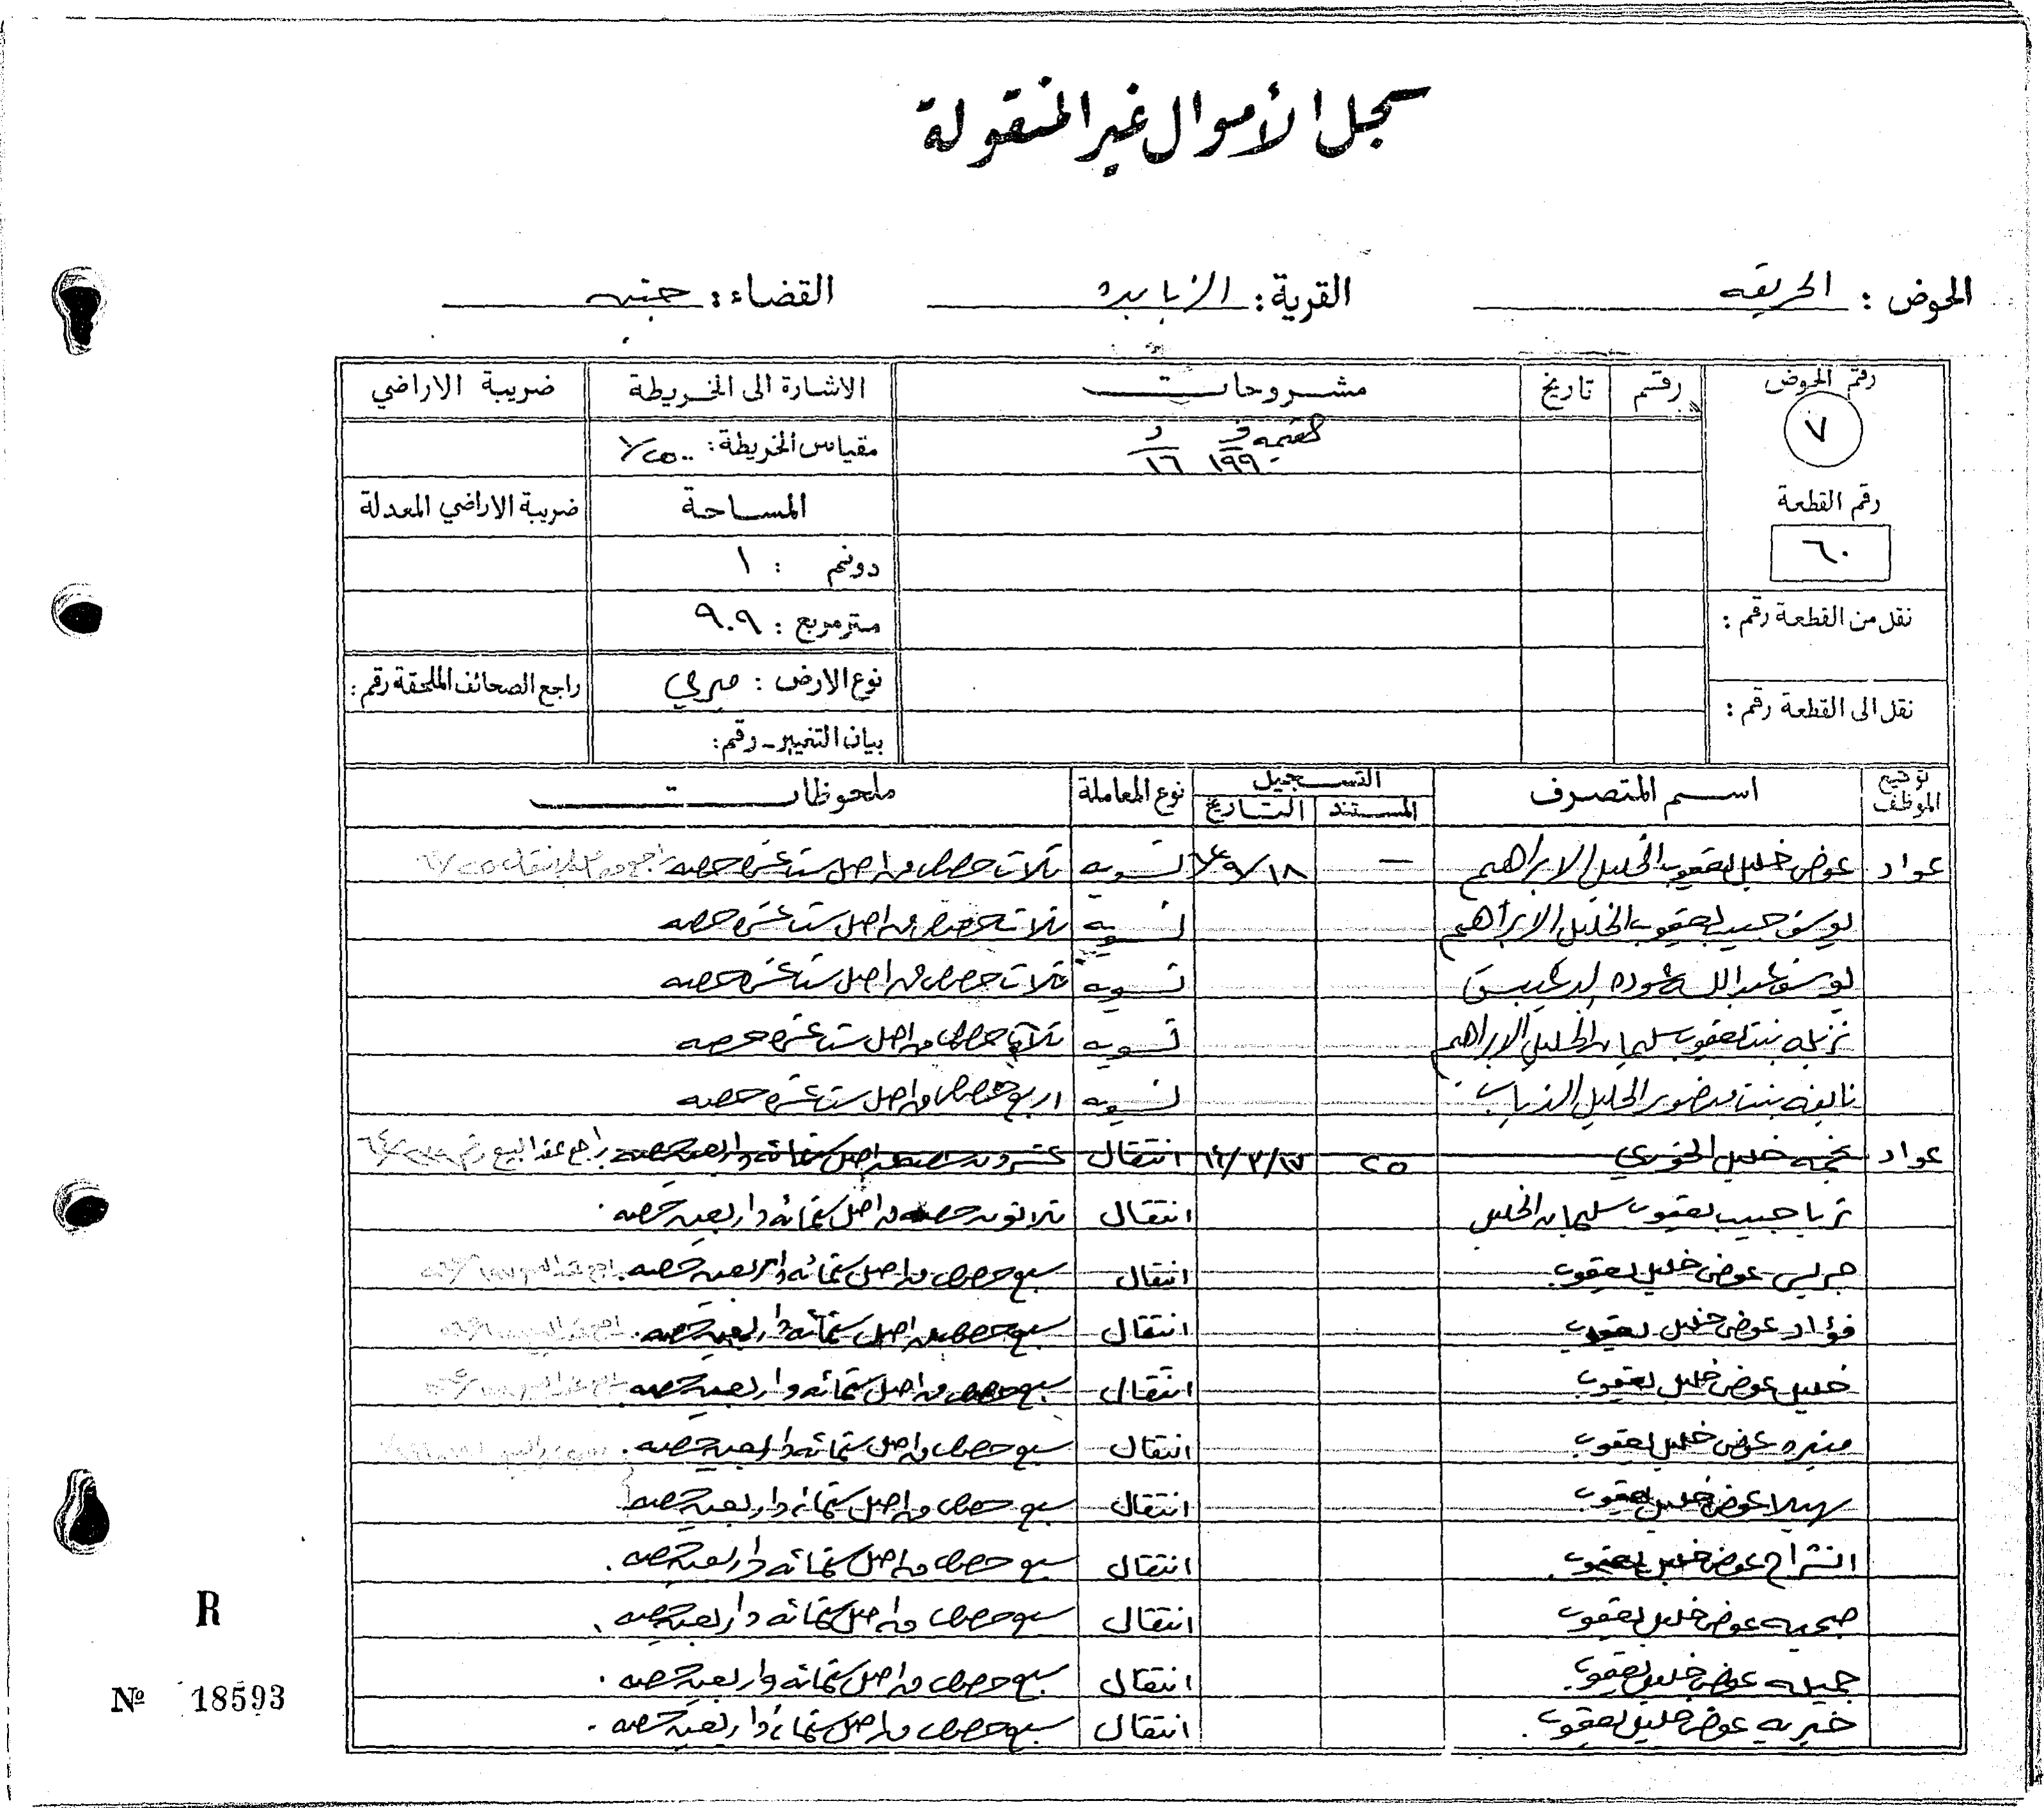 سجل الأموال غير المنقولة
الحوض : الحريقه القرية : الزبابده القضاء : جنين
رقم الحوض رقم تاريخ مشروحات الاشارة الى الخريطة ضريبة الاراضي
٧ القيمه ف د مقياس الخريطة : ١/٢٥٠٠
١٩٩٠ ١٦
رقم القطعة المساحة ضريبة الاراضي المعدلة
٦٠ دونم : ١
نقل من القطعة رقم : متر مربع : ٩٠٩
نوع الارض : ميري راجع الصحائف الملحقة رقم :
نقل الى القطعة رقم : بيان التغيير - رقم :
توقيع الموظف اسم المتصرف التسجيل نوع المعاملة ملحوظات
المستند التاريخ
عواد عوض خليل يعقوب الخليل الابراهيم — ١٨/٩/ تسويه ثلاث حصص من اصل ست عشره حصه
يوسف حبيب يعقوب الخليل الابراهيم تسويه ثلاث حصص من اصل ست عشره حصه
يوسف عبدالله عوده تسويه ثلاث حصص من اصل ست عشره حصه
نزيله بنت يعقوب سليمان الخليل الابراهيم تسويه ثلاث حصص من اصل ست عشره حصه
نايفه بنت منصور الخليل الذياب تسويه اربع حصص من اصل ست عشره حصه
عواد نجمه خليل الخوري ٢٥ انتقال عشرون حصه من اصل ستمائه واربعين حصه راجع عقد البيع رقم
ثريا حبيب يعقوب سليمان الخليل انتقال ثلاثون حصه من اصل ستمائه واربعين حصه .
جريس عوض خليل يعقوب انتقال سبع حصص من اصل ستمائه واربعين حصه .
فؤاد عوض خليل يعقوب انتقال سبع حصص من اصل ستمائه واربعين حصه .
خليل عوض خليل يعقوب انتقال سبع حصص من اصل ستمائه واربعين حصه
منيره عوض خليل يعقوب انتقال سبع حصص من اصل ستمائه واربعين حصه .
سهيلا عوض خليل يعقوب انتقال سبع حصص من اصل ستمائه واربعين حصه
انشراح عوض خليل يعقوب انتقال سبع حصص من اصل ستمائه واربعين حصه .
صبحيه عوض خليل يعقوب انتقال سبع حصص من اصل ستمائه واربعين حصه .
جميله عوض خليل يعقوب . انتقال سبع حصص من اصل ستمائه واربعين حصه .
خيريه عوض خليل يعقوب . انتقال سبع حصص من اصل ستمائه واربعين حصه .
R
Nº 18593